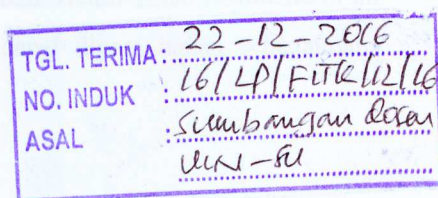 TGL. TERIMA : 22-12-2016
NO. INDUK : 16/LP/FITK/12/16
ASAL : Sumbangan Dosen
UIN-SU